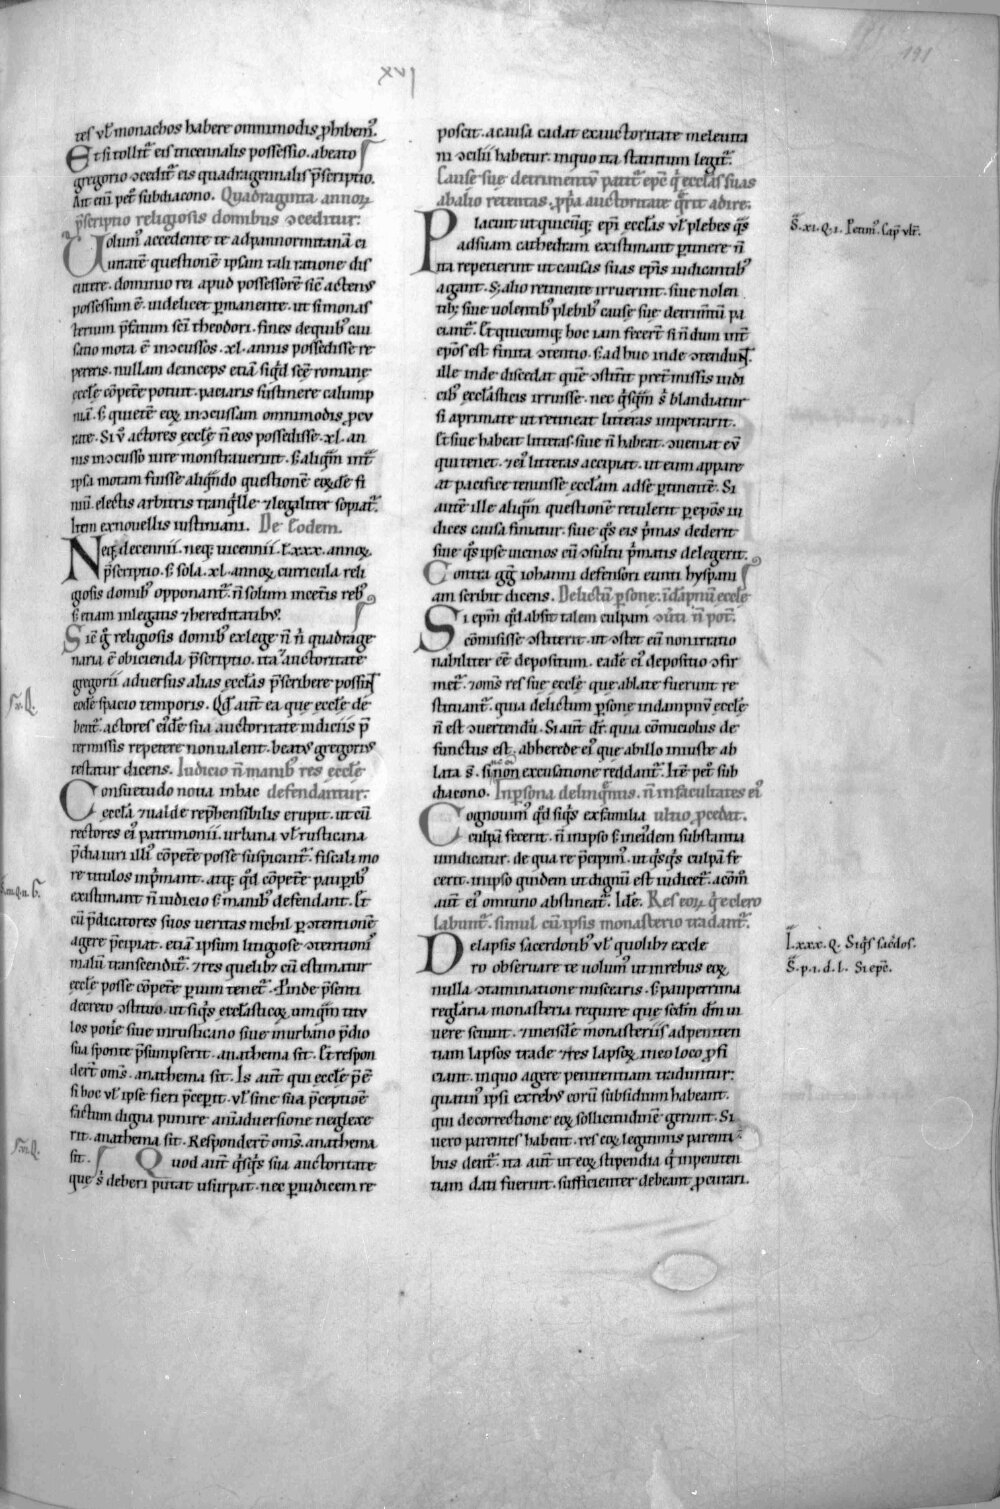 xvi
191
tes ul' monachos habere omnimodis p̱hibem᷒.
Et si tollit᷒ eis tricennalis possessio. a beato
gregorio ↄcedit᷒ eis quadragennalis p̄scriptio.
Ait eni pet᷒ subdiacono. Quadraginta annoꝝ
p̄scriptio religiosis domibus ↄceditur:
Uolum᷒ accedente te ad pannormitanā ci
uitatē questionē ipsam tali ratione dis
cutere. dominio rei apud possessorē siē actenꝰ
possessum ē. uidelicet p̱manente. ut si monas
terium p̄fatum sci theodori. fines de quibꝰ cau
satio mota ē incↄcussos. xl. annis possedisse re
pereris. nullam deinceps etiā siqͥd scē romanę
ecclę cōpetē potuit. paciaris sustinere calump
niā. sꝫ quietē eoꝝ incↄcussam omnimodis ꝓcu
rare. Si ũ actores ecclę ñ eos possedisse. xl. an
nis incↄcusso iure monstrauerint. sꝫ aliqͣm int᷒
ipsa motam fuisse aliqͣndo questionē eoꝝdē fi
niū. electis arbitris tranqͥlle ⁊ legaliter sopiat᷒.
Item ex nouellis iustiniani. De Eodem.
Neqꝫ decennii. neqꝫ uicennii. ł xxx. annoꝝ
p̄scriptio. sꝫ sola. xl. annoꝝ curricula reli
giosis domibꝰ opponant᷒. ñ solum in cet̄is rebꝰ
sꝫ etiam in legatis ⁊ hereditatibꝰ.
Siē gͦ religiosis domibꝰ ex lege ñ nͥ quadrage
naria ē obicienda p̄scriptio. ita ⁊ auctoritate
gregorii aduersus alias ecclas p̄scribere possuɴͭ
eodē spacio temporis. Qd aut̄ ea que ecclę de
bent᷒. actores eidē sua auctoritate iudiciis p̄
termissis repetere non ualent. beatꝰ gregoriꝰ
testatur dicens. Iudicio ñ manibꝰ res ecclę
Consuetudo noua in hac defendantur:
eccla ⁊ ualde rep̱hensibilis erupit. ut cū
rectores eiꝰ patrimonii. urbana ul' rusticana
p̄dia iuri illiꝰ cōpetē posse suspicant᷒. fiscali mo
re titulos inp̱mant. atqꝫ qd cōpetē pauꝑibꝰ
existimant ñ iudicio sꝫ manibꝰ defendant. Et
cū p̄dicatores suos ueritas nichil ꝑ ↄtentionē
agere p̄cipiat. etiā ipsum litigiose ↄtentionis
malū transcendit᷒. ⁊ res quelibꝫ cū estimatur
ecclę posse cōpetē ꝑ uim tenet᷒. Proinde p̄senti
decreto ↄstituo. ut siqͥs ecclasticoꝝ umqͣm titu
los ponē siue in rusticano siue in urbano p̄dio
sua sponte p̄sumpserit. anathema sit. Et respon
dert om̄s. anathema sit. Is aut̄ qui ecclę p̄ē
si hoc ul' ipse fieri p̄cepit. ul' sine sua p̄ceptioē
factum digna punire animaduersione neglexe
rit. anathema sit. Respondert om̄s. anathema
sit. Quod aut̄ qͥsqͥs sua auctoritate
que sͥ deberi putat usurpat. nec ꝑ iudicem re
poscit. a causa cadat ex auctoritate meleuita
ni ↄcilii habetur. in quo ita statutum legit᷒.
Cause sue detrimentū patit᷒ epē qͥ ecclas suas
ab alio retentas. ꝓpͥa auctoritate qͣrit adire.
Placuit ut quicūqꝫ epi ecclas ul' plebes qͣs
ad suam cathedram existimant ꝑtinere ñ
ita repetierint ut causas suas epis iudicantibꝰ
agant. sꝫ alio retinente irruerint. siue nolen
tibꝫ siue uolentibꝰ plebibꝰ cause sue detrimtū pa
ciant᷒. Et quicumqꝫ hoc iam fecert̄ si ñdum int᷒
epos est finita ↄtentio. sꝫ adhuc inde ↄtenduɴͭ.
ille inde discedat quē ↄstit̄it pret̄missis iudi
cibꝰ ecclasticis irruisse. nec qͥsqͣm sͥ blandiatur
si a primate ut retineat litteras impetrarit.
Et siue habeat litteras. siue ñ habeat. ↄueniat eū
qui tenet. ⁊ eiꝰ litteras accipiat. ut eum appare
at pacifice tenuisse ecclam ad se ꝑtinentē. Si
autē ille aliqͣm questionē retulerit. ꝑ epos iu
dices causa finiatur. siue qͦs eis pͥmas dederit
siue qͦs ipse uicinos cū ↄsultu pͥmatis delegerit.
Contra gͥg iohanni defensori eunti hyspani
am scribit dicens. Delictū psone. in dāpnū ecclę
Si epm̄ qd absit talem culpam ↄuti ñ pot̄.
cōmisisse ↄstiterit. ut ↄstet eū non irratio
nabiliter eē depositum. eadē eiꝰ depositio ↄfir
met᷒. ⁊ om̄s res sue ecclę que ablate fuerunt re
stituant᷒. quia delictum ꝑsone in dampnū ecclę
ñ est ↄuertendū. Si aut̄ dr̄. quia cōmiciolus de
functus est. ab herede eiꝰ que ab illo iniuste ab
lata s̄. sine non excusatione reddant᷒. Itē pet᷒ sub
diacono. In ꝑsona delinqͣntis. ñ in facultates eiꝰ
Cognouimꝰ qd siqͥs ex familia ultio ꝓcedat.
culpā fecerit. ñ in ipso sꝫ in eiꝰdem substantia
uindicatur. de qua re p̄cipimꝰ. ut qͥsqͥs culpā fe
cerit. in ipso quidem ut dignū est uindicet᷒. a cōmꝰ
aut̄ eiꝰ omnino abstineat᷒. Idē. Res eoꝝ qͥ e clero
labunt᷒. simul cū ipsis monasterio tradant᷒.
De lapsis sacerdotibꝰ ul' quolibꝫ ex cle
ro obseruare te uolumꝰ ut in rebus eoꝝ
nulla ↄtaminatione miscearis. sꝫ pauperrima
reglaria monasteria require que scdm dm̄ ui
uere sciunt. ⁊ in eisdē monasteriis ad peniten
tiam lapsos trade ⁊ res lapsoꝝ in eo loco ꝓfi
ciant. in quo agere penitentiam traduntur:
quatinꝰ ipsi ex rebꝰ eorū subsidium habeant.
qui de correctione eoꝝ sollicitudinē gerunt. Si
uero parentes habent. res eoꝝ legitimis parenti
bus dent᷒. ita aut̄ ut eoꝝ stipendia qͥ in peniten
tiam dati fuerint. sufficienter debeant ꝓcurari.
S̄. xi. q. i. Petimꝰ. Cap̄ ult̄.
I. xxx. Q. Siqͥs sac̄dos.
S̄. p. i. d. l. Si epc̄.